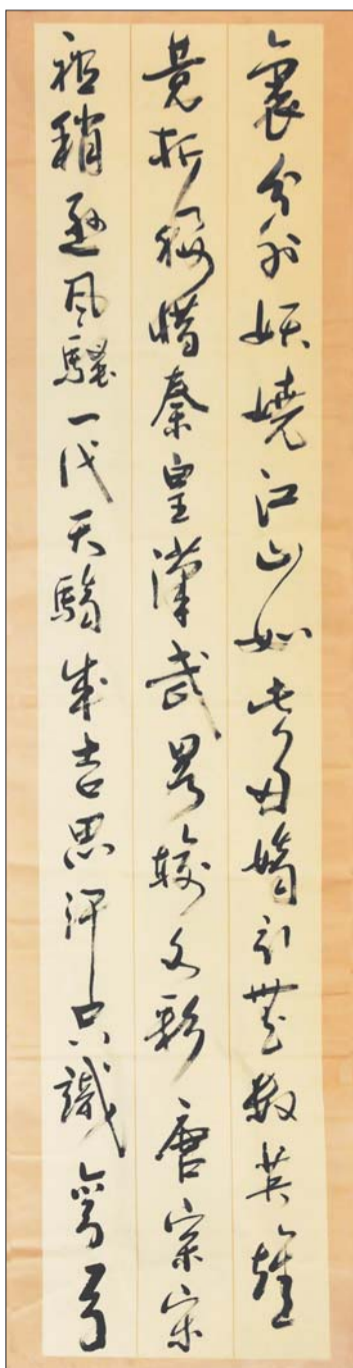 裹分外妖嬈江山如此多嬌引無数英雄
竟折腰惜秦皇漢武畧輸文彩唐宗宋
祖稍遜風騷一代天驕成吉思汗只識彎弓